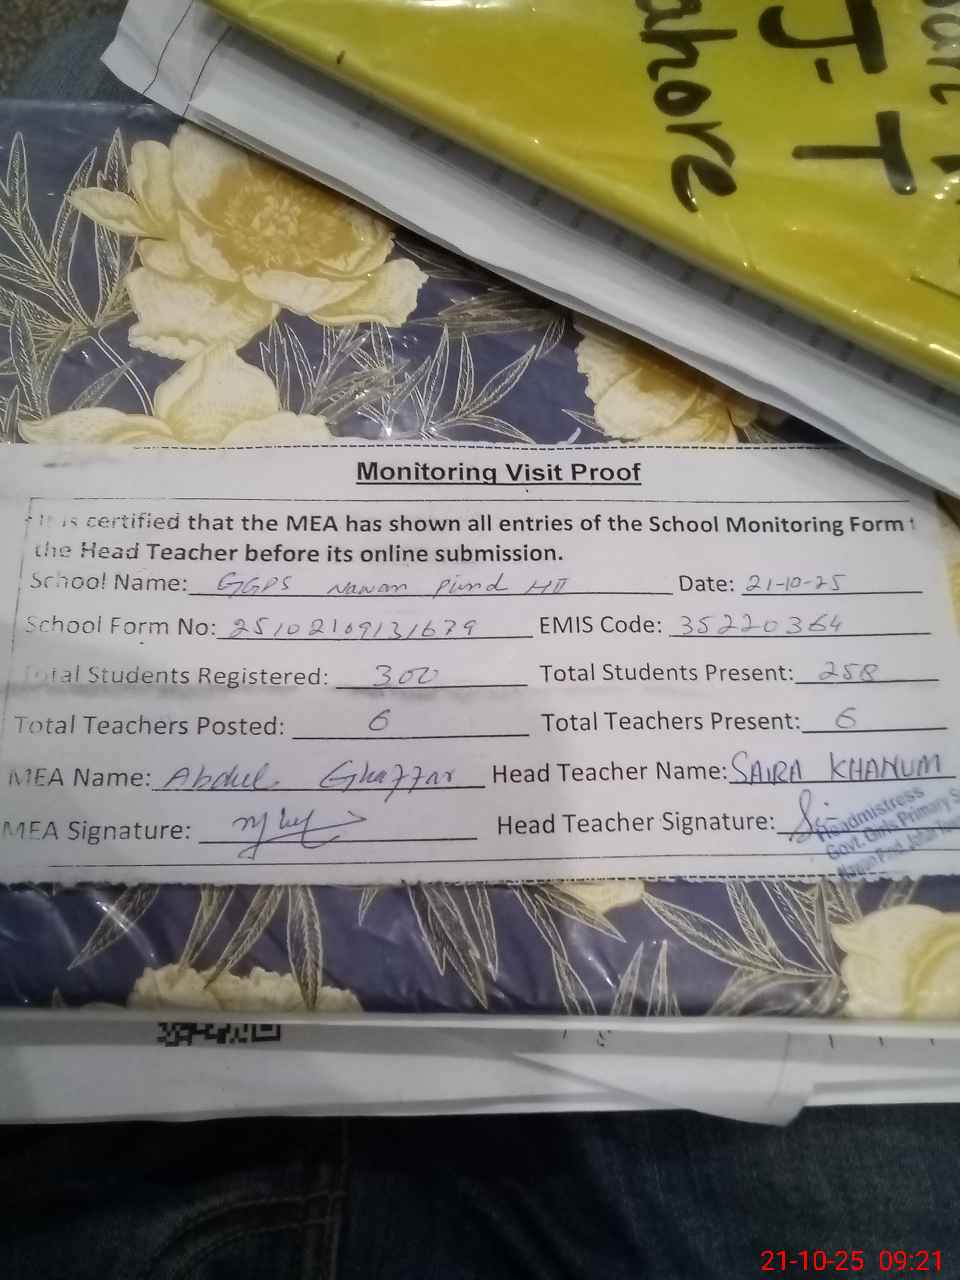 ahore
J-T
Monitoring Visit Proof
It is certified that the MEA has shown all entries of the School Monitoring Form
the Head Teacher before its online submission.
School Name: GGPS Nawan Pind HII Date: 21-10-25
School Form No: 2510210913/679 EMIS Code: 35220364
Total Students Registered: 300 Total Students Present: 258
Total Teachers Posted: 6 Total Teachers Present: 6
MEA Name: Abdul Ghaffar Head Teacher Name: SAIRA KHANUM
MEA Signature: Head Teacher Signature:
Headmistress
Govt. Girls Primary S
21-10-25 09:21